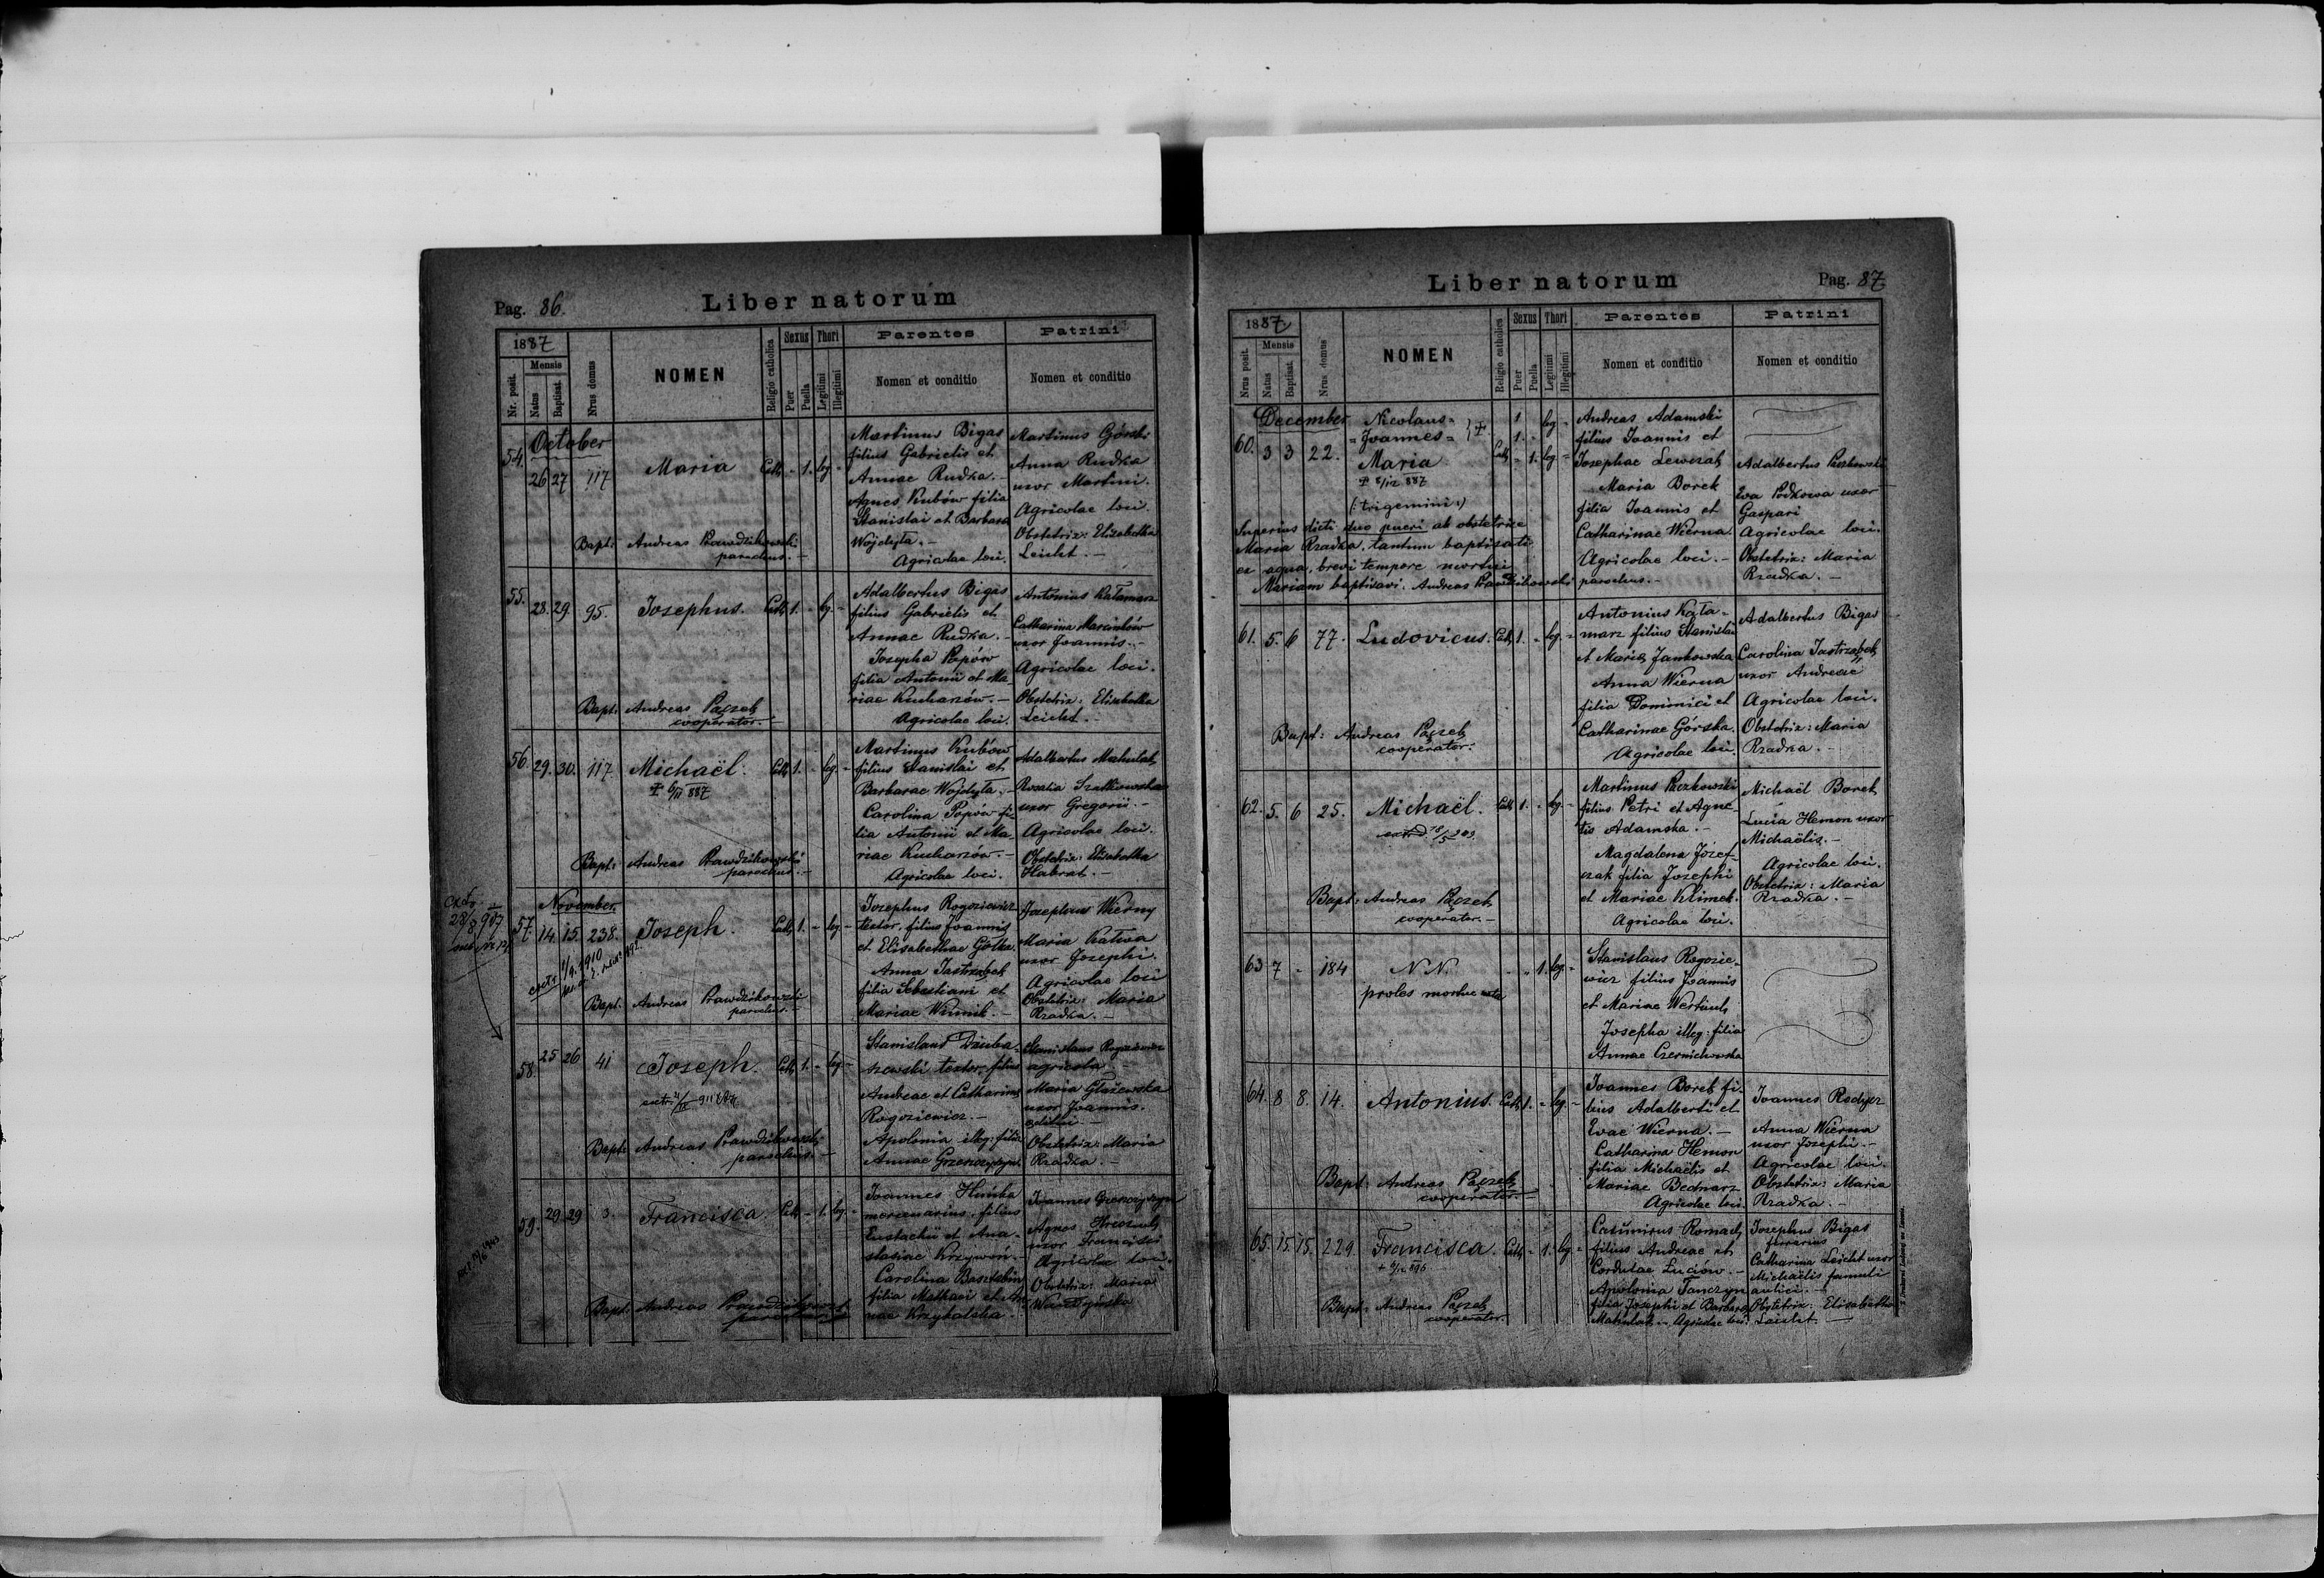 Pag. 86.
Liber natorum
1887
Nr. posit.
Mensis
Natus
Baptisat.
Nrus domus
NOMEN
Religio catholica
Sexus
Puer
Puella
Thori
Legitimi
Illegitimi
Parentes
Nomen et conditio
Patrini
Nomen et conditio
October
54. 26 27 117 Maria Cath - 1. leg. -
Martinus Bigas
filius Gabrielis et
Annae Rudka. -
Agnes Kubów filia
Stanislai et Barbara
Wojdyła. -
Agricolae loci.
Martinus Górski
Anna Rudka
uxor Martini.
Agricolae loci.
Obstetrix: Elisabetha
Leicht. -
Bapt: Andreas Prawdzikowski
parochus. -
55. 28. 29. 95. Josephus. Cath 1. - leg. -
Adalbertus Bigas
filius Gabrielis et
Annae Rudka. -
Josepha Popów
filia Antonii et Ma-
riae Kucharzów. -
Agricolae loci.
Antonius Katamarz
Catharina Marcinków
uxor Joannis. -
Agricolae loci.
Obstetrix: Elisabetha
Leicht. -
Bapt: Andreas Pączek
cooperator. -
56. 29. 30. 117. Michaël. Cath 1. - leg. -
Martinus Kubów
filius Stanislai et
Barbarae Wojdyła. -
Carolina Popów fi-
lia Antonii et Ma-
riae Kucharzów. -
Agricolae loci.
Adalbertus Machulak
Rosalia Szatkowska
uxor Gregorii. -
Agricolae loci.
Obstetrix: Elisabetha
Habrat. -
Bapt: Andreas Prawdzikowski
parochus. -
extr.
28/8 907
November.
57. 14. 15. 238. Joseph. Cath 1. - leg -
Josephus Rogoziewicz
textor, filius Joannis
et Elisabethae Gołba
Anna Jastrzabek
filia Sebastiani et
Mariae Winnik. -
Josephus Wierny
Maria Kalwa
uxor Josephi.
Agricolae loci
Obstetrix: Maria
Rzadka. -
Bapt: Andreas Prawdzikowski
parochus. -
58. 25 26 41 Joseph. Cath 1. - leg -
Stanislaus Dziuba-
szewski textor, filius
Andreae et Catharinae
Rogoziewicz. -
Apolonia illeg: filia
Annae Grzeszczyszyn.
Stanislaus Rogoziewicz
agricola. -
Maria Głażewska
uxor Joannis.
Obstetrix: Maria
Rzadka. -
Bapt: Andreas Prawdzikowski
parochus. -
59. 29 29 3. Francisca. Cath - 1. leg. -
Joannes Huńka
mercenarius, filius
Eustachii et Ana-
stasiae Krzywoń. -
Carolina Basztabin
filia Mathaei et An-
nae Krzykalska.
Joannes Grzeszczyszyn
Agnes
uxor Francisci
Agricolae loci.
Obstetrix: Maria
Bapt: Andreas Prawdzikowski
parochus
Liber natorum
Pag. 87
1887.
Nrus posit.
Mensis
Natus
Baptisat.
Nrus domus
NOMEN
Religio catholica
Sexus
Puer
Puella
Thori
Legitimi
Illegitimi
Parentes
Nomen et conditio
Patrini
Nomen et conditio
December
Nicolaus -
- Joannes -
60. 3 3 22. Maria Cath - 1. leg. -
(: trigemini :)
Andreas Adamski
filius Joannis et
Josephae Lewczak
Maria Borek
filia Joannis et
Catharinae Wierna.
Agricolae loci. -
Adalbertus Paszkowski
Eva Podkowa uxor
Gaspari
Agricolae loci.
Obstetrix: Maria
Rzadka. -
Superius dicti duo pueri ab obstetrice
Maria Rzadka, tantum baptizati
ex aqua, brevi tempore mortui
Mariam baptisavi. Andreas Prawdzikowski parochus. -
61. 5. 6 77. Ludovicus. Cath 1. - leg. -
Antonius Kata-
marz filius Stanislai
et Maria Jankowska
Anna Wierna
filia Dominici et
Catharinae Górska.
Agricolae loci.
Adalbertus Bigas
Carolina Jastrzabek
uxor Andreae
Agricolae loci.
Obstetrix: Maria
Rzadka. -
Bapt: Andreas Pączek
cooperator.
62. 5. 6 25. Michaël. Cath 1. - leg. -
Martinus Paszkowski
filius Petri et Agne-
tis Adamska. -
Magdalena Józef-
czak filia Josephi
et Mariae Klimek.
Agricolae loci.
Michaël Borek
Lucia Hemon uxor
Michaëlis. -
Agricolae loci.
Obstetrix: Maria
Rzadka. -
Bapt: Andreas Pączek
cooperator. -
63 7 - 184 N. N. - - 1. leg. -
proles mortue nata
Stanislaus Rogozie-
wicz filius Joannis
et Mariae
Josepha illeg: filia
Annae Czernichowska
64. 8 8. 14. Antonius. Cath 1. - leg. -
Joannes Borek fi-
lius Adalberti et
Evae Wierna. -
Catharina Hemon
filia Michaëlis et
Mariae Bednarz
Agricolae loci.
Joannes Redycz
Anna Wierna
uxor Josephi. -
Agricolae loci.
Obstetrix: Maria
Rzadka. -
Bapt: Andreas Pączek
cooperator. -
65. 15. 15. 229. Francisca. Cath - 1. leg. -
Casimirus Romach
filius Andreae et
Cordulae Luciów. -
Apolonia Tanczyn
filia Josephi et Barbara
Machulak. - Agricolae loci.
Josephus Bigas
Catharina Leicht uxor
Michaëlis famuli
aulici. -
Obstetrix: Elisabetha
Leicht. -
Bapt: Andreas Pączek
cooperator. -